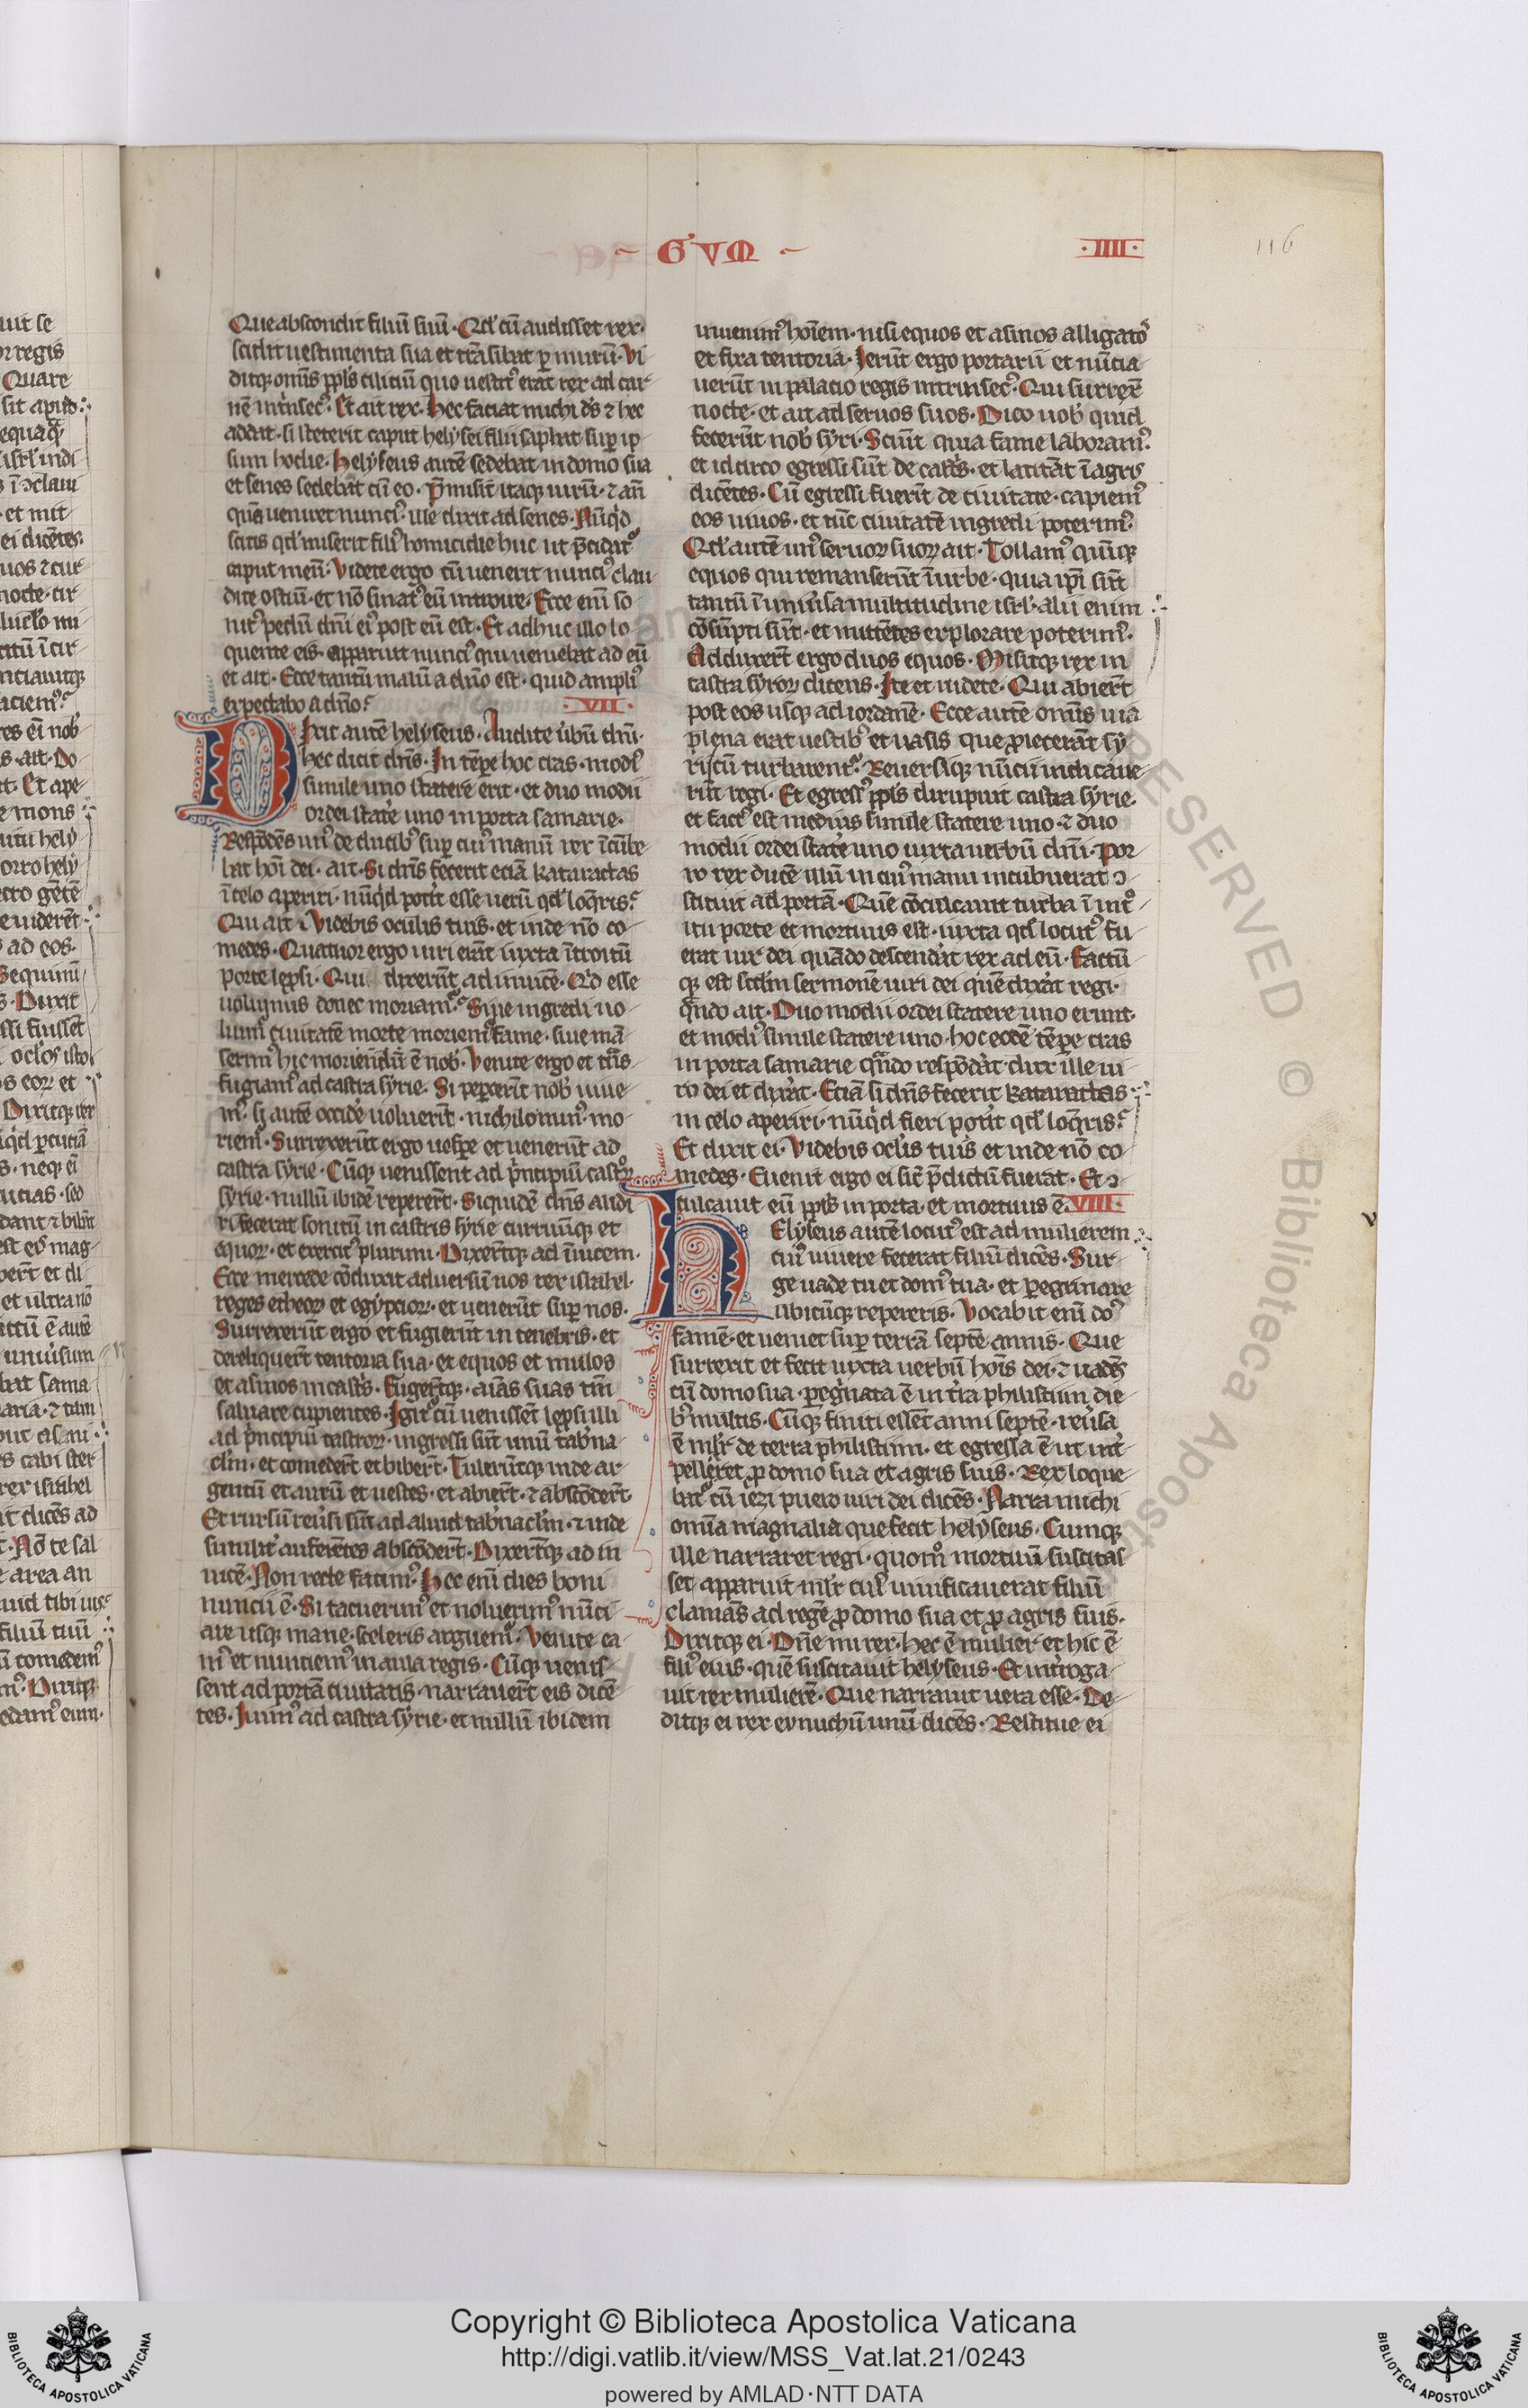 ~ GVM ~
·IIII·
116
Que abscondit filiu͞ suu͞· Qd' cu͞ audisset rex·
scidit uestimenta sua et tra͞sibat p̱ muru͞· Vi
ditq; om͞is ppl's ciliciu͞ quo uestit' erat rex ad car
ne͞ intrinsec'· Et ait rex· Hec faciat michi d's ⁊ hec
addat· si steterit caput helysei filii saphat sup̱ ip
sum hodie· Helyseus aute͞ sedebat in domo sua
et senes sedeba͞t cu͞ eo· P͞misit itaq; uiru͞· ⁊ an͞
qua͞ ueniret nunci'· ille dixit ad senes· Nu͞qd
scitis qd' miserit fili' homicidie huc ut p͞cidat'
caput meu͞· Videte ergo cu͞ uenerit nunci' clau
dite ostiu͞· et no͞ sinat' eu͞ introire· Ecce eni͞ so
nit' pedu͞ dn͞i ei' post eu͞ est· Et adhuc illo lo
quente eis· apparuit nunci' qui ueniebat ad eu͞
et ait· Ecce tantu͞ malu͞ a dn͞o est· quid ampli'
expectabo a dn͞o?
·VII·
Dixit aute͞ helyseus· Audite u'bu͞ dn͞i·
hec dicit dn͞s· In te͞pe hoc cras· modi'
simile uno statere erit· et duo modii
ordei stat'e uno in porta samarie·
Respo͞de͞s un' de ducib' sup̱ cui' manu͞ rex i͞cu͞be
bat ho͞i dei· ait· Si dn͞s fecerit ecia͞ kataractas
i͞ celo aperiri· nu͞qd pot'it esse ueru͞ qd' loq͞ris?
Qui ait· Videbis oculis tuis· et inde no͞ co
medes· Quatuor ergo uiri era͞t iuxta i͞troitu͞
porte lep̱si· Qui dixeru͞t ad inuice͞· Qd esse
uolumus donec moriam'? Siue ingredi uo
lum' ciuitate͞ morte moriem' fame· siue ma͞
serim' hic moriendu͞ e͞ nob'· Venite ergo et t͞ns
fugiam' ad castra syrie· Si pepercri͞t nob' uiue
m'· si aute͞ occide' uoluerit· nichilomin' mo
riem'· Surrexeru͞t ergo uespe et ueneru͞t ad
castra syrie· Cu͞q; uenissent ad p'ncipiu͞ castror'
syrie· nullu͞ ibide͞ reperer͞t· Siquide͞ dn͞s audi
ri fecerat sonitu͞ in castris syrie curruu͞q; et
equor'· et exercit' plurimi· Dixer͞tq; ad i͞uicem·
Ecce mercede co͞duxit aduersu͞ nos rex israhel·
reges etheor' et egyptior'· et ueneru͞t sup̱ nos·
Surrexeru͞t ergo et fugieru͞t in tenebris· et
dereliquer͞t tentoria sua· et equos et mulos
et asinos in cast'is· Fuger͞tq; a͞i͞as suas tm͞
saluare cupientes· Igit' cu͞ uenisse͞t lep̱si illi
ad p'ncipiu͞ castror'· ingressi su͞t unu͞ tab'na
cl'm· et comeder͞t et biber͞t· Tuleru͞tq; inde ar
gentu͞ et auru͞ et uestes· et abier͞t· ⁊ absco͞der͞t·
Et rursu͞ reu'si su͞t ad aliud tab'nacl'm· ⁊ inde
similit' aufere͞tes absco͞der͞t· Dixer͞tq; ad in
uice͞· Non recte facim'· Hec eni͞ dies boni
nuncii e͞· Si tacuerim' et noluerim' nu͞ci
are usq; mane· sceleris arguem'· Venite ea
m' et nunciem' in aula regis· Cu͞q; uenis
sent ad porta͞ ciuitatis· narrauer͞t eis dice͞
tes· Iuim' ad castra syrie· et nullu͞ ibidem
inuenim' ho͞iem· nisi equos et asinos alligatos
et fixa tentoria· Ieru͞t ergo portarii et nu͞cia
ueru͞t in palacio regis intrinsec'· Qui surrexit
nocte· et ait ad seruos suos· Dico uob' quid
feceru͞t nob' syri· Sciu͞t quia fame laboram'·
et idcirco egressi su͞t de cast's· et latita͞t i͞ agris
dice͞tes· Cu͞ egressi fueri͞t de ciuitate· capiem'
eos uiuos· et tu͞c ciuitate͞ ingredi poterim'·
Qd' aute͞ un' seruor' suor' ait· Tollam' qui͞q;
equos qui remanseru͞t i͞ urbe· quia ip͞i su͞t
tantu͞ i͞ uniu'sa multitudine isrl'· alii enim
co͞su͞pti su͞t· et mitte͞tes explorare poterim'·
Adduxer͞t ergo duos equos· Misitq; rex in
castra syror' dicens· Ite et uidete· Qui abier͞t
post eos usq; ad iordane͞· Ecce aute͞ om͞is uia
plena erat uestib' et uasis que p̱iecera͞t sy
ri cu͞ turbarent'· Reuersiq; nu͞cii indicaue
ru͞t regi· Et egress' ppl's diripuit castra syrie·
et fact' est modius simile statere uno· ⁊ duo
modii ordei stat'e uno iuxta uerbu͞ dn͞i· Por
ro rex duce͞ illu͞ in cui' manu incubuerat ɔ
stituit ad porta͞· Que͞ co͞culcauit turba i͞ int'o
itu porte et mortuus est· iuxta qd' locut' fu
erat uir dei qua͞do descendat rex ad eu͞· Factu͞
q; est scd'm sermone͞ uiri dei que͞ dix'at regi·
qn͞do ait· Duo modii ordei statere uno erunt·
et modi' simile statere uno· hoc eode͞ te͞pe cras
in porta samarie· qn͞do respo͞d'at dux ille ui
ro dei et dix'at· Ecia͞ si dn͞s fecerit kataractas
in celo aperiri· nu͞qd fieri pot'it qd' loq͞ris?
Et dixit ei· Videbis ocl'is tuis et inde no͞ co
medes· Euenit ergo ei sic͞ p͞dictu͞ fuerat· Et ɔ
culcauit eu͞ ppl's in porta· et mortuus e͞· VIII·
HElyseus aute͞ locut' est ad mulierem
cui' uiuere fecerat filiu͞ dice͞s· Sur
ge uade tu et dom' tua· et p̱egrinare
ubicu͞q; repereris· Vocabit eni͞ do'
fame͞· et ueniet sup̱ terra͞ septe͞ annis· Que
surrexit et fecit iuxta uerbu͞ ho͞is dei· ⁊ uade͞s
cu͞ domo sua· p̱eg'nata e͞ in t'ra philistiim die
b' multis· Cu͞q; finiti esse͞t anni septe͞· reu'sa
e͞ mlr' de terra philistiim· et egressa e͞ ut int'
pelleret p̱ domo sua et agris suis· Rex loque
bat' cu͞ iezi puero uiri dei dice͞s· Narra michi
omnia magnalia que fecit helyseus· Cumq;
ille narraret regi· quom' mortuu͞ suscitas
set· apparuit mlr' cui' uiuificauerat filiu͞
clama͞s ad rege͞ p̱ domo sua et p̱ agris suis·
Dixitq; ei· Dn͞e mi rex· hec e͞ mulier et hic e͞
fili' eius· que͞ suscitauit helyseus· Et int'roga
uit rex muliere͞· Que narrauit uera esse· De
ditq; ei rex eunuchu͞ unu͞ dice͞s· Restitue ei
Copyright © Biblioteca Apostolica Vaticana
http://digi.vatlib.it/view/MSS_Vat.lat.21/0243
powered by AMLAD·NTT DATA